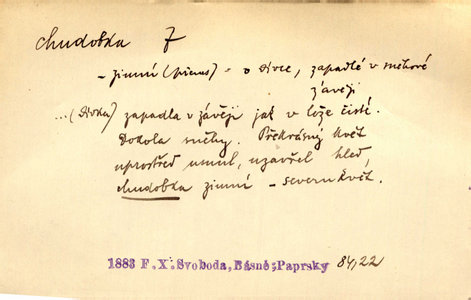 chudobka f
- zimní (přenes) = o dívce, zapadlé v sněhové
závěji
... (Dívka) zapadla v závěji jak v lože čisté.
Dokola sněhy. Překrásný květ
uprostřed usnul, uzavřel hled,
chudobka zimní - severu květ.
1883 F. X. Svoboda, Básně; Paprsky 84, 22